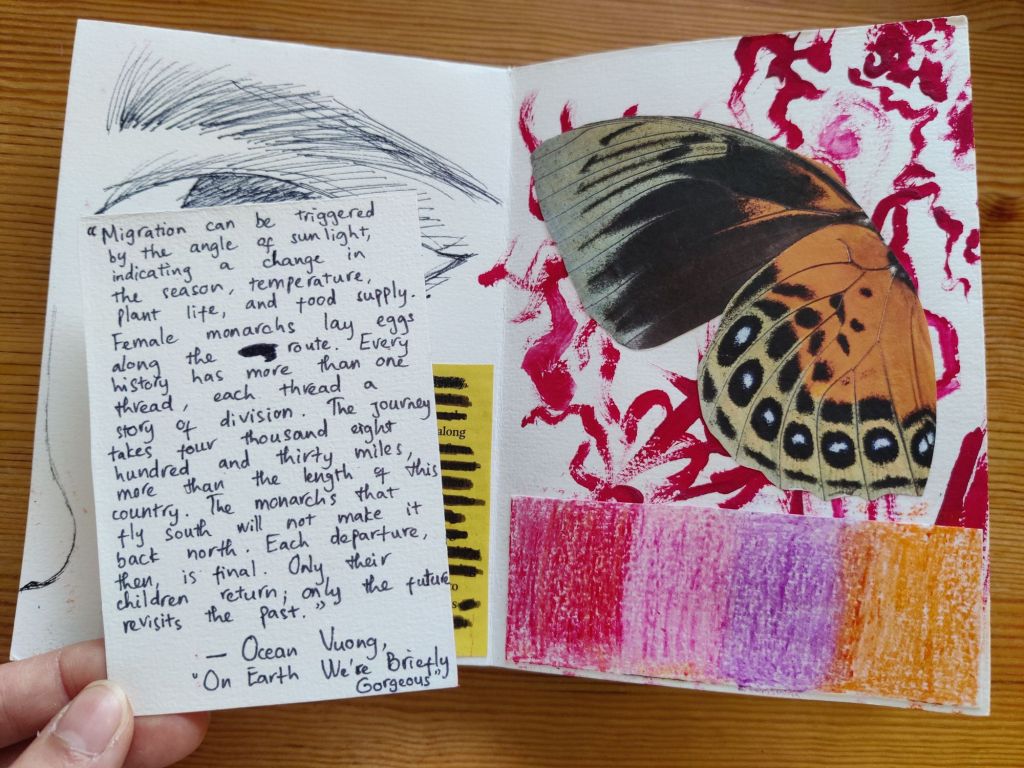 "Migration can be triggered
by the angle of sunlight,
indicating a change in
the season, temperature,
plant life, and food supply.
Female monarchs lay eggs
along the route. Every
history has more than one
thread, each thread a
story of division. The journey
takes four thousand eight
hundred and thirty miles,
more than the length of this
country. The monarchs that
fly south will not make it
back north. Each departure,
then, is final. Only their
children return; only the future
revisits the past."
— Ocean Vuong,
"On Earth We're Briefly
Gorgeous"
along